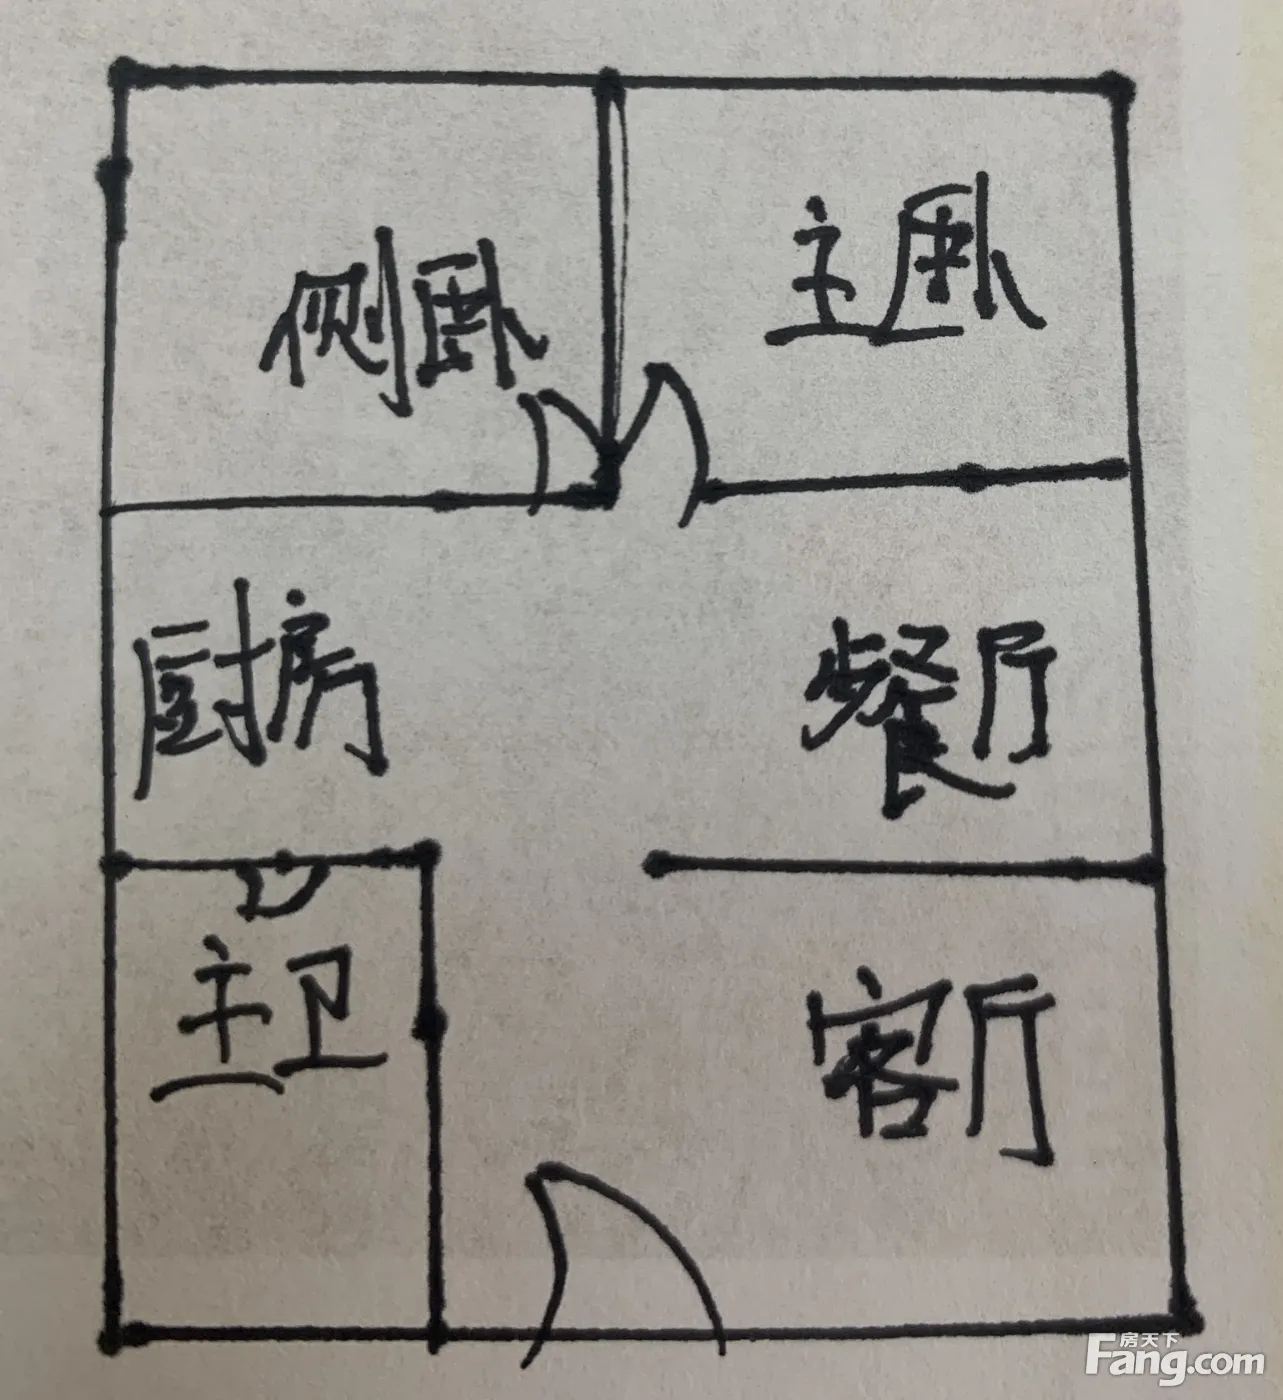 侧卧
主卧
厨房
餐厅
主卫
客厅
房天下
Fang.com